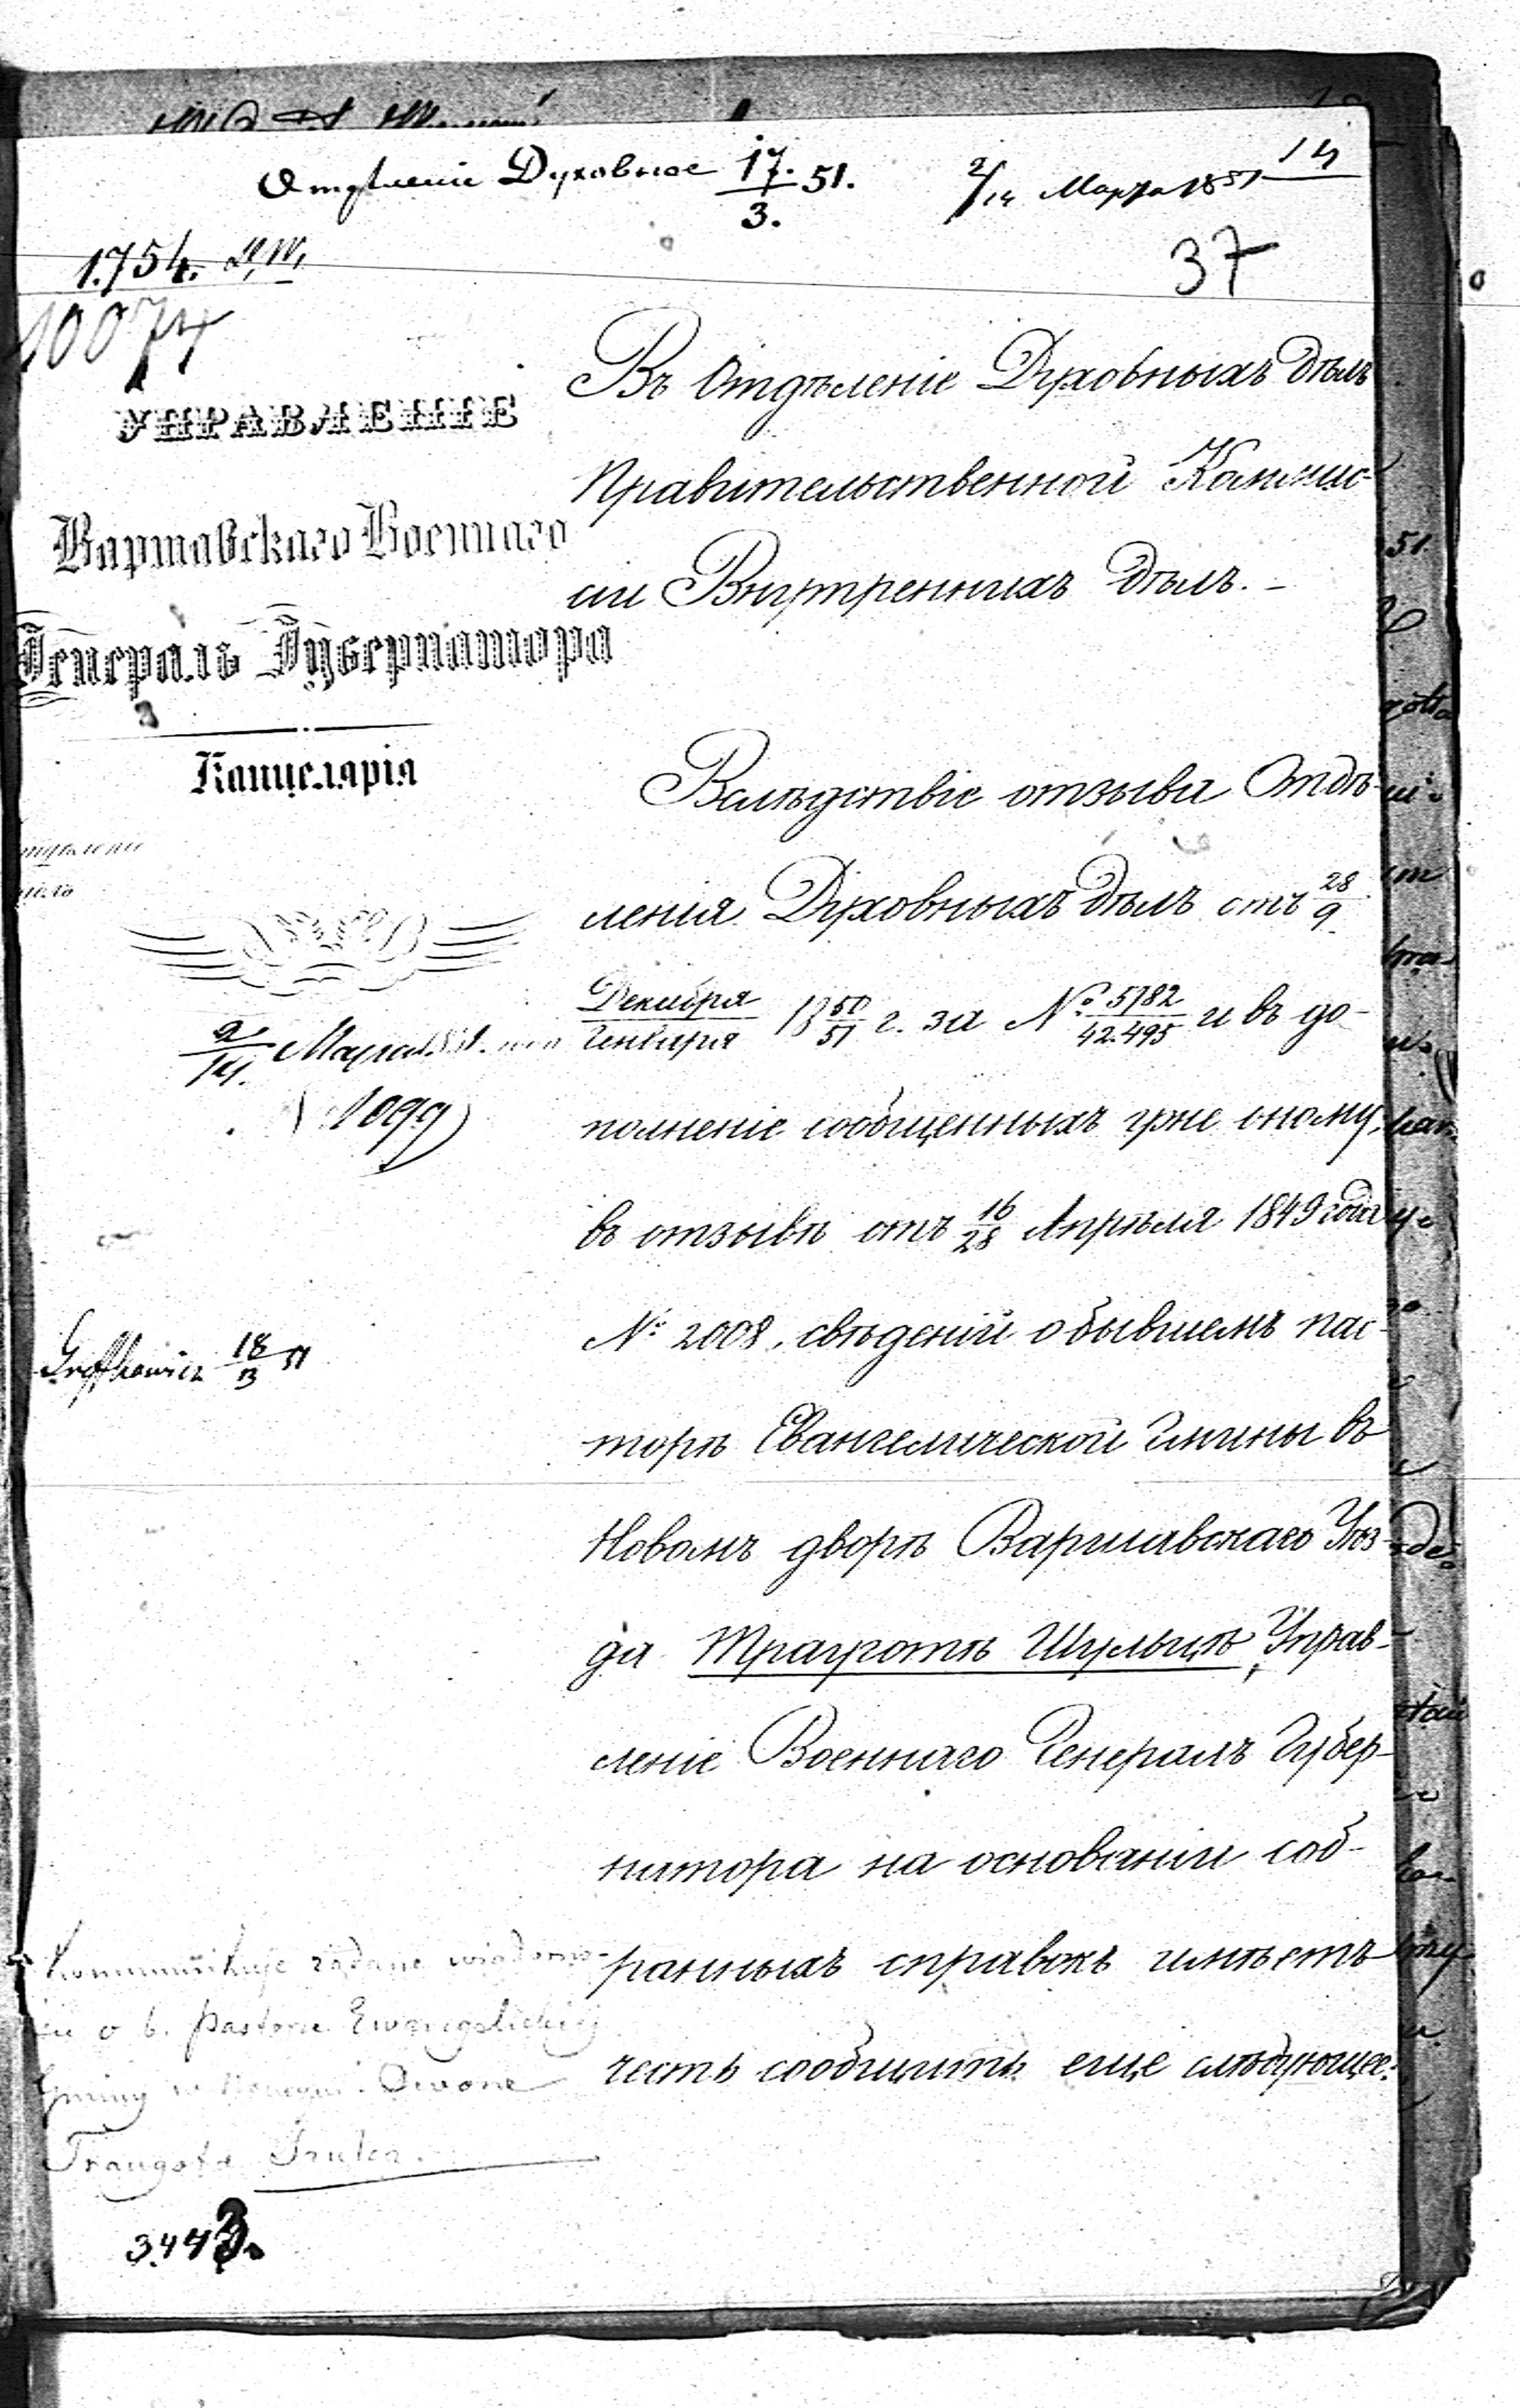 Отдѣленіе Духовное 17./3. 51.
2/14 Марта 1851
14
1.754.
37
10074
УПРАВЛЕНІЕ
Варшавскаго Военнаго
Генералъ Губернатора
Канцелярія
2/14. Марта 1851.
1099
18/3 51
Въ Отдѣленіе Духовныхъ дѣлъ
Правительственной Коммис-
сіи Внутреннихъ дѣлъ. –
Вслѣдствіе отзыва Отдѣ-
ленія Духовныхъ дѣлъ отъ 28/9
Декабря/Генваря 18 50/51 г. за № 5782/42.495 и въ до-
полненіе сообщенныхъ уже оному,
въ отзывѣ отъ 16/28 Апрѣля 1849 года
№ 2008, свѣденій о бывшемъ пас-
торѣ Евангелической Гмины въ
Новомъ дворѣ Варшавскаго Уѣз-
да Трауготѣ Шульцѣ, Управ-
леніе Военнаго Генералъ Губер-
натора на основаніи соб-
ранныхъ справокъ имѣетъ
честь сообщить еще слѣдующее:
Kommunikuje żądane wiadomo-
o b. Pastorze Ewangelickiej
Gminy w Dworze
Traugota Szulca.
3443.